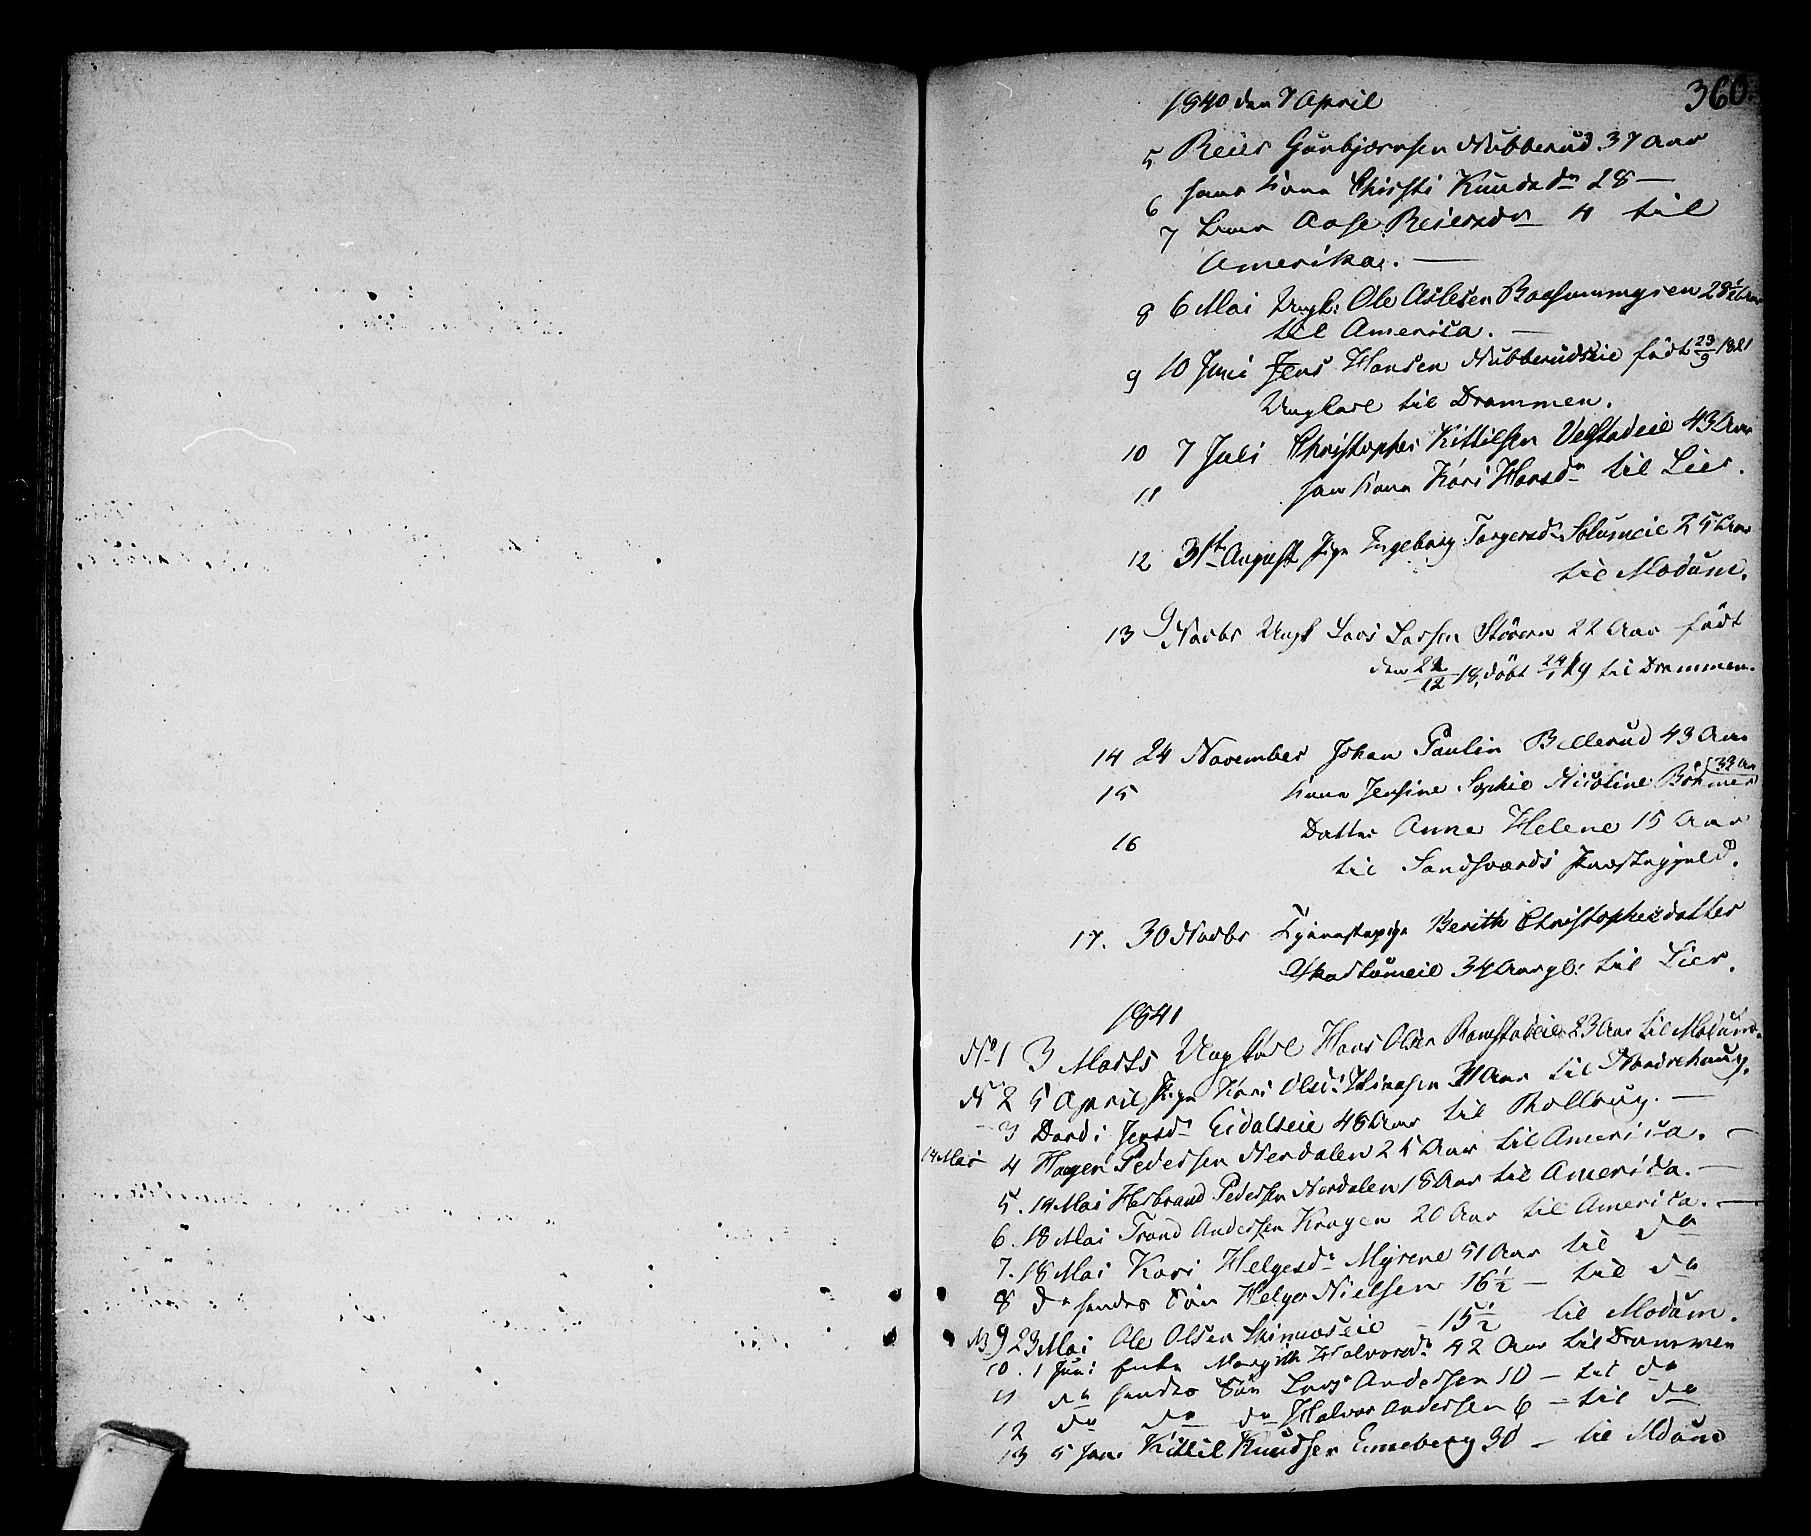 360.
1840 den 7 April
5 Reier Gunbjørnsen Nubberud. 37 Aar
6 hans Kone Christi Knudsdr 28 —
7 Aase Reiersdr 4 til
Amerika. —
8 6 Mai Ungk: Ole Aslesen 28½ Aar
til America. —
9 10 Juni Jens Hansen Nubberudeie født 23/9 1821
Ungkarl til Drammen.
10 7 Juli Christopher Kittilsen Velstadeie 43 Aar
11 hans Kone Kari Hansdr til Lier.
12 31te August Pige Ingeborg Torgersdr Solumeie 25 Aar
til Modum.
13 9 Novbr Ungk Lars Larsen Støveren 22 Aar født
den 22/12 18, döbt 24/1 19 til Drammen.
14 24 November Johan Paulin Bellerud 43 Aar
15 Kone Jensine Sophie Nicoline Böhmer 39 Aar
16 Datter Anne Helene 15 Aar
til Sandsværds Præstegjeld.
17. 30 Novbr Tjenestepige Berith Christophersdatter
34 Aar gl: til Lier.
1841
No 1 3 Marts Ungkarl Hans Olsen Ramstadeie 23 Aar til Modum.
No 2 5 April Pige Kari Olsdr 31 Aar til Norderhoug.
3 Dordi Jensdr Eidalseie 48 Aar til Rollaug. —
14 Mai 4 Hagen Pedersen Nerdalen 25 Aar til America. —
5. 14 Mai Herbrand Pedersen Nerdalen 18 Aar til America. —
6. 18 Mai Trond Andersen Kragen 20 Aar til America. —
7. 18 Mai Kari Helgesdr Myrene 51 Aar til do
8 do hendes Sön Helge Nielsen 16½ — til do
N 9 23 Mai Ole Olsen Skinnæseie — 15½ til Modum.
10. 1 Juni Enke Margith Halvorsdr 42 Aar til Drammen
11 do hendes Sön Lars Andersen 10 — til do
12 do do do Halvor Andersen 6 — til do
13 5 Kittil Knudsen Enneberg 30 — til Modum